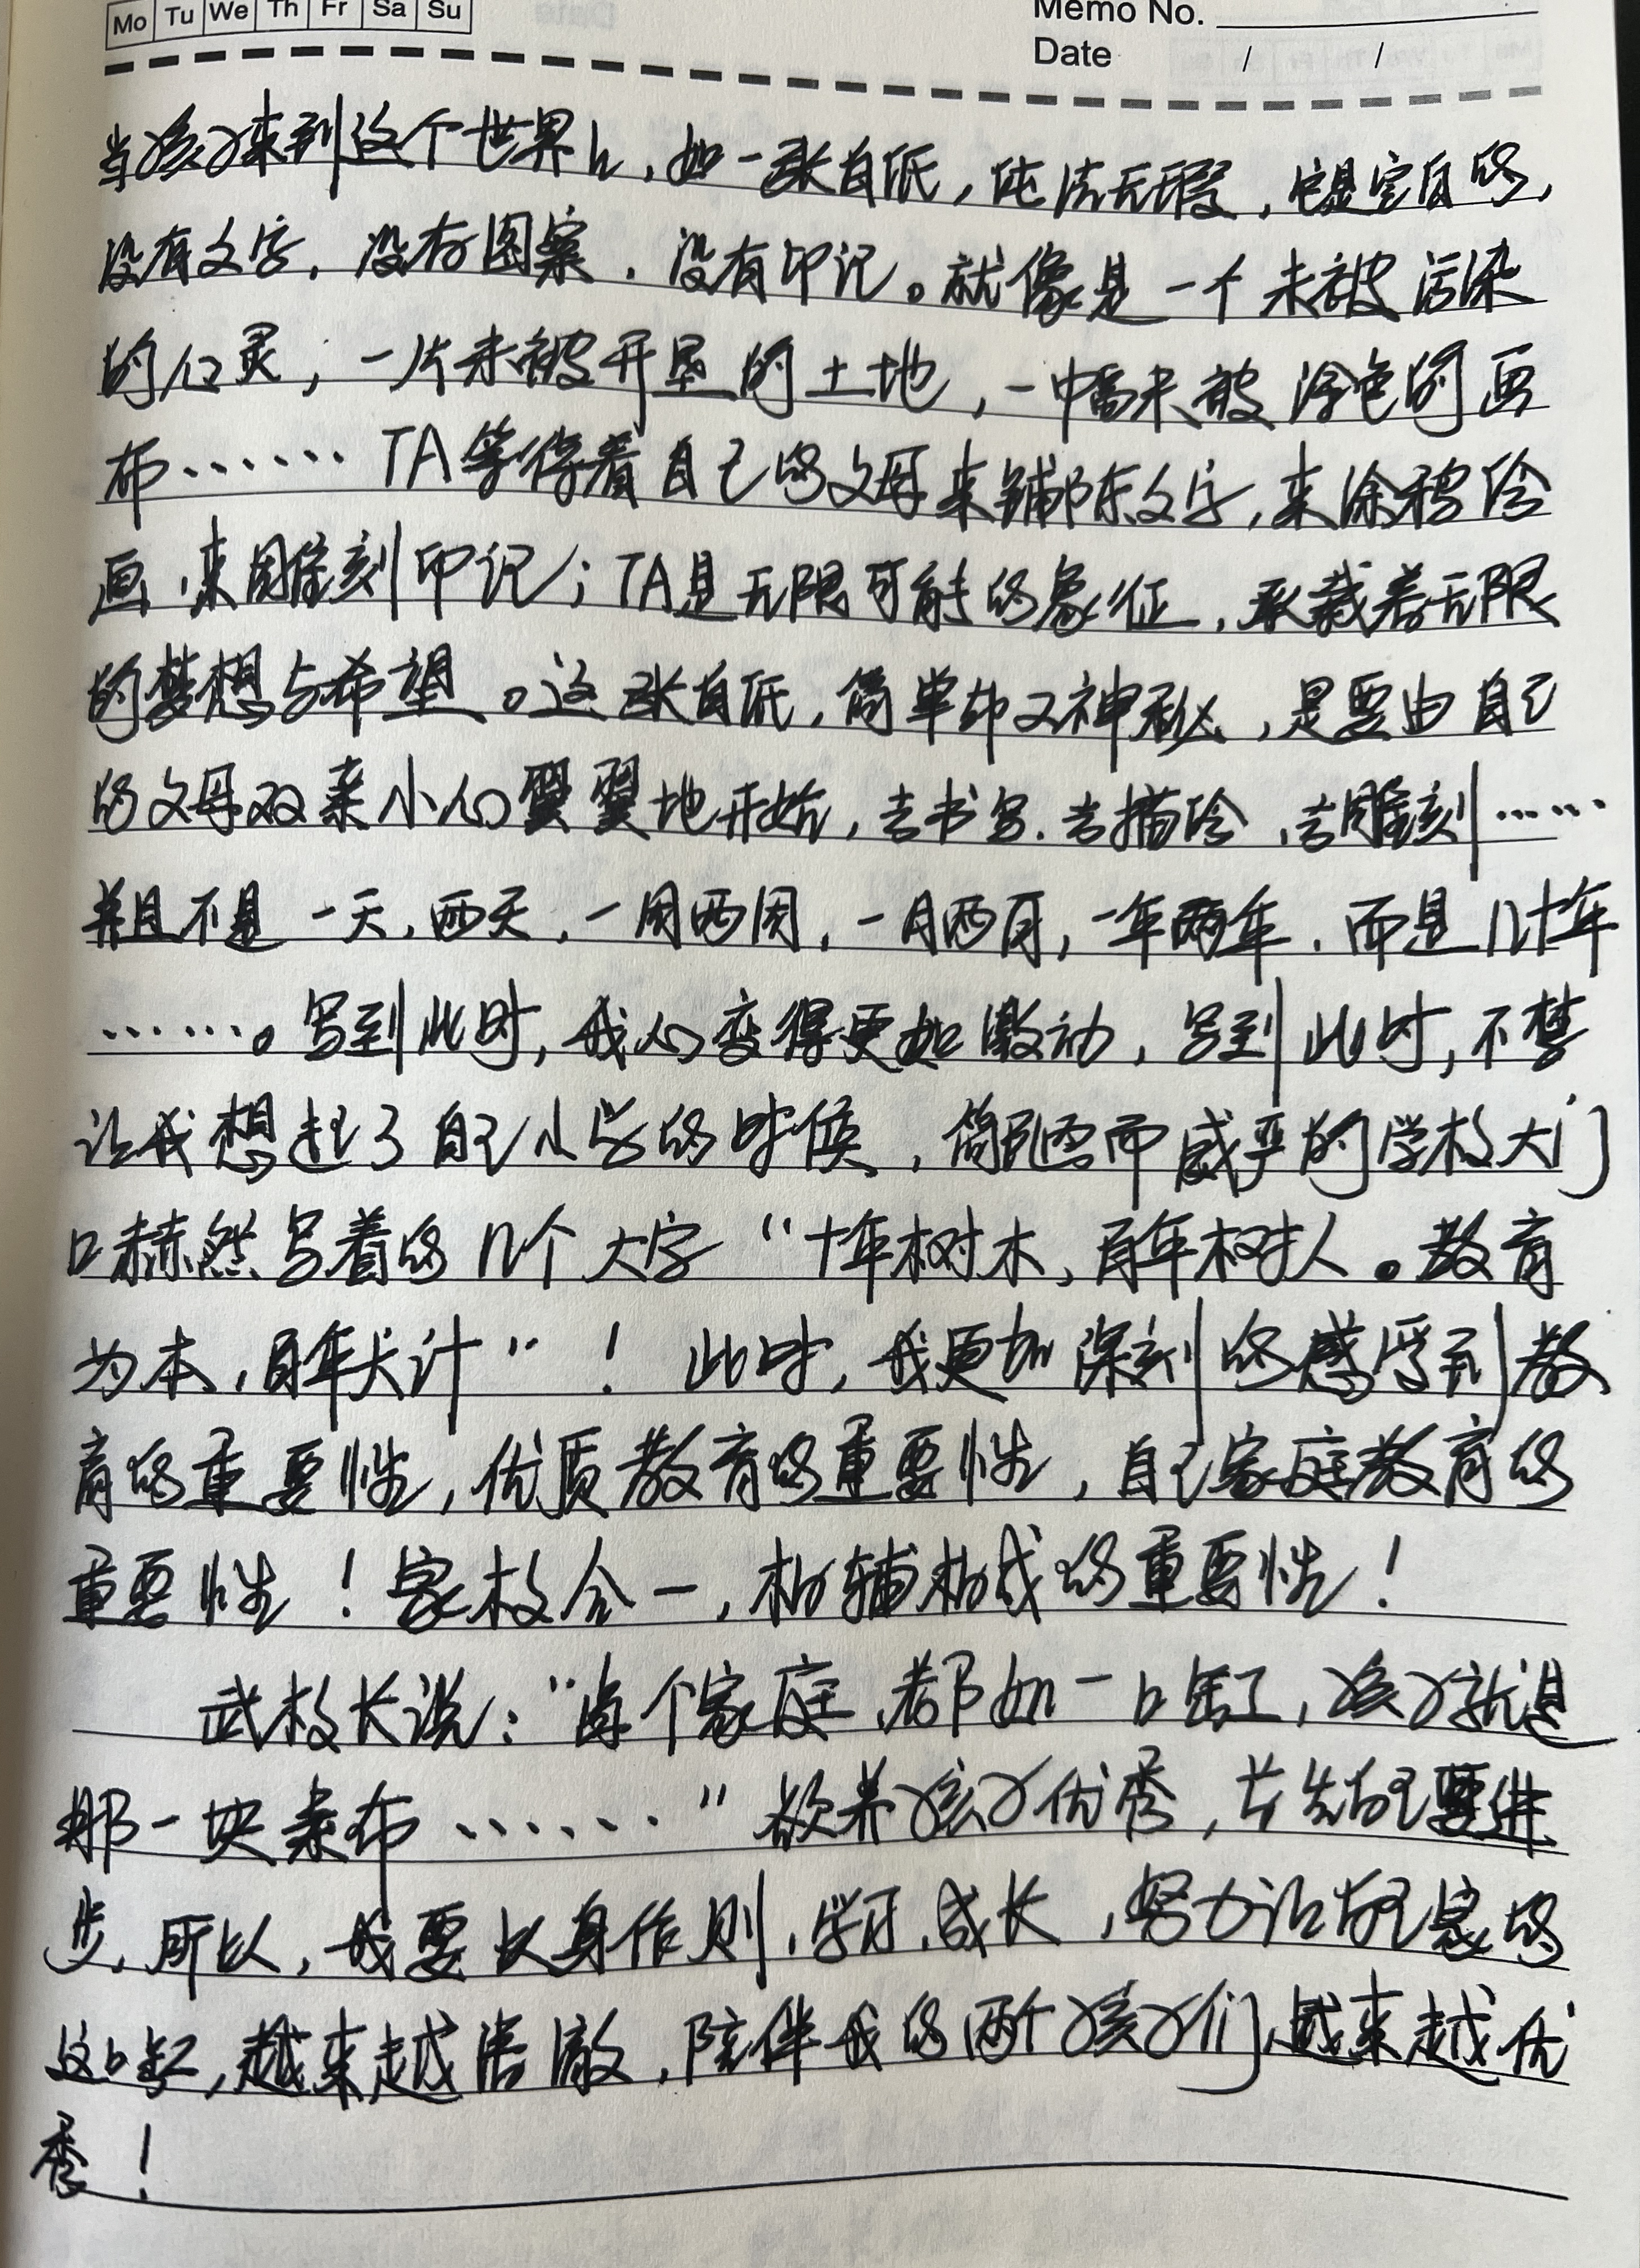 Mo Tu We Th Fr Sa Su
Memo No.
Date / /
当孩子来到这个世界上,如一张白纸,纯洁无瑕,它是空白的,
没有文字,没有图案,没有印记。就像是一个未被污染
的心灵;一片未被开垦的土地,一幅未被涂色的画
布…… TA等待着自己的父母来铺陈文字,来涂鸦绘
画,来雕刻印记;TA是无限可能的象征,承载着无限
的梦想与希望。这张白纸,简单却又神秘,是要由自己
的父母双亲小心翼翼地开始,去书写.去描绘,去雕刻……
并且不是一天,两天,一周两周,一月两月,一年两年.而是几十年
……。写到此时,我心变得更加激动,写到此时,不禁
让我想起了自己小学的时候,简陋而威严的学校大门
口赫然写着的几个大字“十年树木,百年树人。教育
为本,百年大计”! 此时,我更加深刻的感受到教
育的重要性,优质教育的重要性,自己家庭教育的
重要性!家校合一,相辅相成的重要性!
武校长说:“每个家庭,都如一口缸,孩子就是
那一块素布……”欲养孩子优秀,首先自己要进
步,所以,我要以身作则,学习,成长,努力让自己家的
这口缸,越来越清澈,陪伴我的两个孩子们,越来越优
秀!